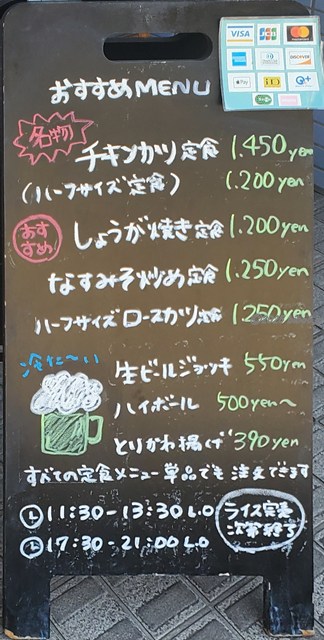 VISA JCB MasterCard
AMERICAN EXPRESS DISCOVER
Pay iD QUICPay
おすすめMENU
名物
チキンカツ定食 1.450yen
(ハーフサイズ定食) 1.200yen
おすすめ
しょうが焼き定食 1.200yen
なすみそ炒め定食 1.250yen
ハーフサイズロースカツ定食 1.250yen
冷た〜い
生ビールジョッキ 550yen
ハイボール 500yen〜
とりかわ揚げ 390yen
すべての定食メニュー単品でも注文できます
11:30-13:30 L.O
17:30-21:00 L.O
ライス完売
次第終了